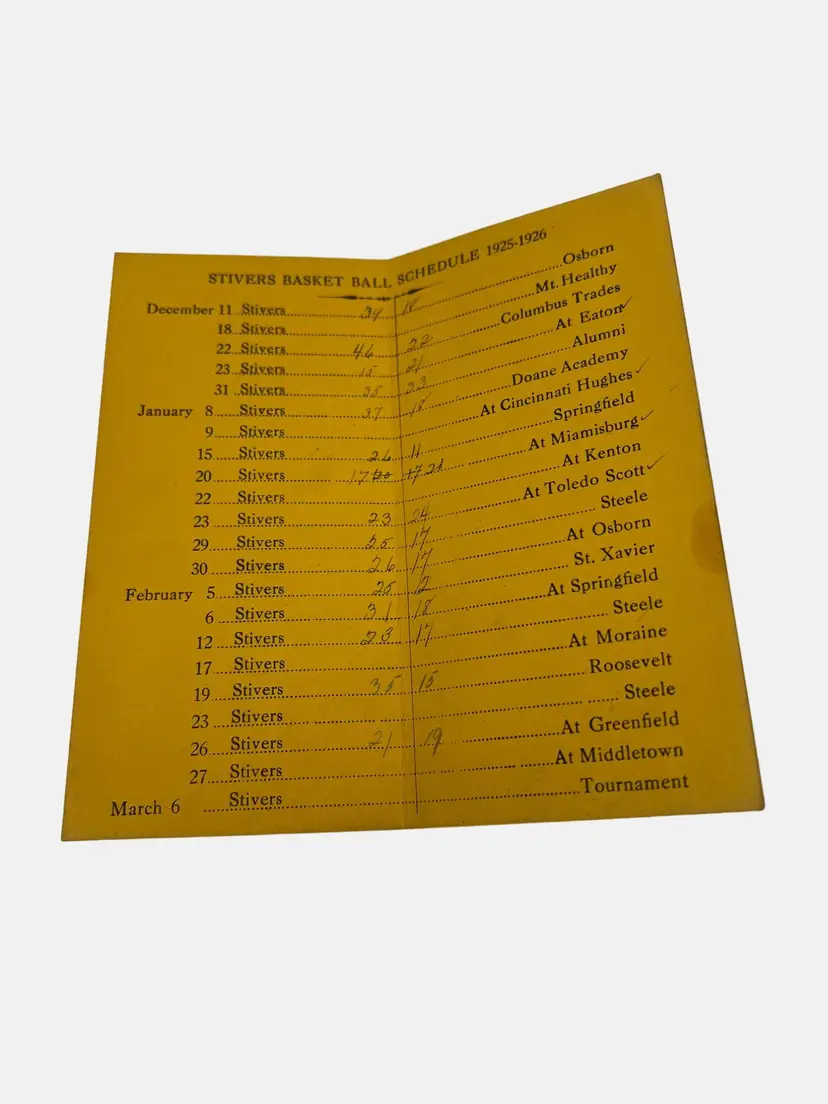 STIVERS BASKET BALL SCHEDULE 1925-1926
December 11 Stivers 34 18 Osborn
18 Stivers Mt. Healthy
22 Stivers 46 22 Columbus Trades
23 Stivers 15 21 At Eaton
31 Stivers 35 23 Alumni
January 8 Stivers 37 18 Doane Academy
9 Stivers At Cincinnati Hughes
15 Stivers 26 11 Springfield
20 Stivers 17 20 17 21 At Miamisburg
22 Stivers At Kenton
23 Stivers 23 24 At Toledo Scott
29 Stivers 25 17 Steele
30 Stivers 26 17 At Osborn
February 5 Stivers 25 12 St. Xavier
6 Stivers 31 18 At Springfield
12 Stivers 23 17 Steele
17 Stivers At Moraine
19 Stivers 35 15 Roosevelt
23 Stivers Steele
26 Stivers 21 19 At Greenfield
27 Stivers At Middletown
March 6 Stivers Tournament